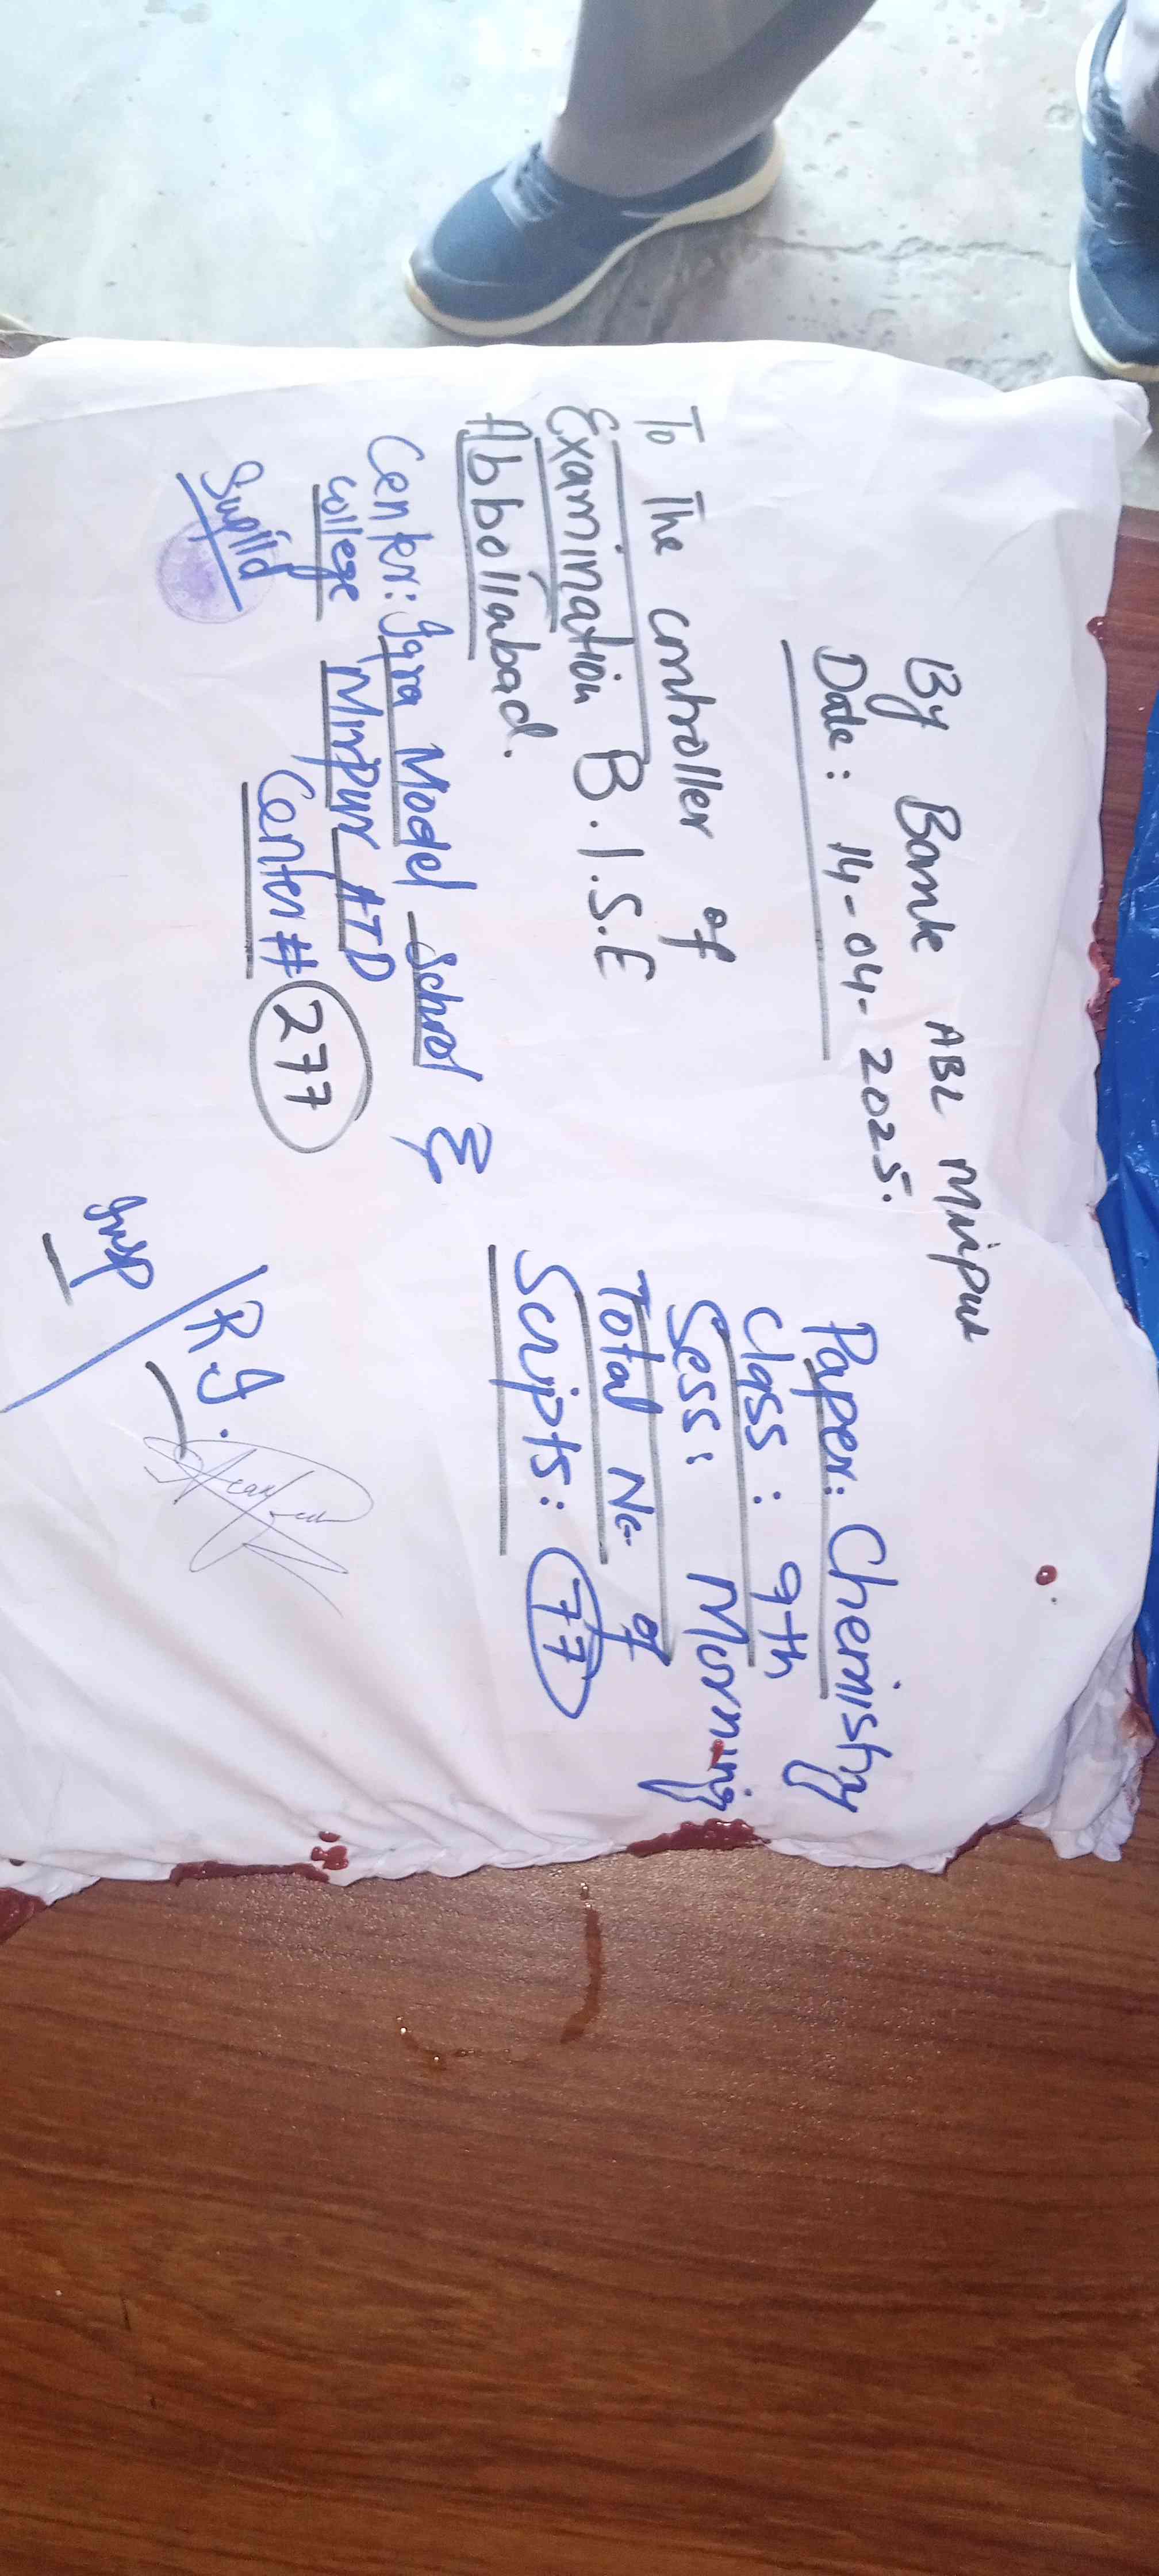 By Bank ABL Mirpur
Date: 14-04-2025.
To The controller of
Examination B.I.S.E
Abbottabad.
Center: Iqra Model School &
college Mirpur ATD
Center # 277
Suptld
Paper: Chemistry
Class: 9th
Sess: Morning
Total No of
Scripts: 77
R.I.
Insp